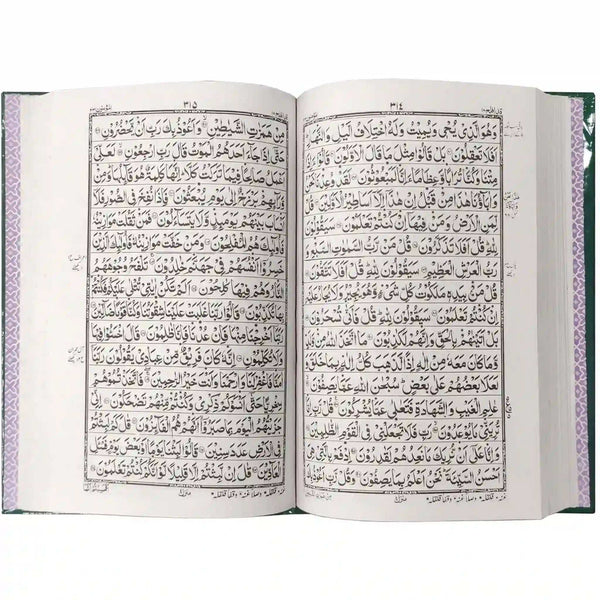 ٣١٤
وَهُوَ الَّذِیْ یُحْیٖ وَیُمِیْتُ وَلَهُ اخْتِلَافُ الَّیْلِ وَالنَّهَارِ
اَفَلَا تَعْقِلُوْنَ ۝ بَلْ قَالُوْا مِثْلَ مَا قَالَ الْاَوَّلُوْنَ ۝ قَالُوْٓا ءَاِذَا
مِتْنَا وَكُنَّا تُرَابًا وَّعِظَامًا ءَاِنَّا لَمَبْعُوْثُوْنَ ۝ لَقَدْ وُعِدْنَا نَحْنُ
وَاٰبَآؤُنَا هٰذَا مِنْ قَبْلُ اِنْ هٰذَآ اِلَّآ اَسَاطِیْرُ الْاَوَّلِیْنَ ۝ قُلْ
لِّمَنِ الْاَرْضُ وَمَنْ فِیْهَآ اِنْ كُنْتُمْ تَعْلَمُوْنَ ۝ سَیَقُوْلُوْنَ
لِلّٰهِ قُلْ اَفَلَا تَذَكَّرُوْنَ ۝ قُلْ مَنْ رَّبُّ السَّمٰوٰتِ السَّبْعِ وَ
رَبُّ الْعَرْشِ الْعَظِیْمِ ۝ سَیَقُوْلُوْنَ لِلّٰهِ قُلْ اَفَلَا تَتَّقُوْنَ ۝
قُلْ مَنْۢ بِیَدِهٖ مَلَكُوْتُ كُلِّ شَیْءٍ وَّهُوَ یُجِیْرُ وَلَا یُجَارُ عَلَیْهِ
اِنْ كُنْتُمْ تَعْلَمُوْنَ ۝ سَیَقُوْلُوْنَ لِلّٰهِ قُلْ فَاَنّٰی تُسْحَرُوْنَ ۝
بَلْ اَتَیْنٰهُمْ بِالْحَقِّ وَاِنَّهُمْ لَكٰذِبُوْنَ ۝ مَا اتَّخَذَ اللّٰهُ مِنْ وَّلَدٍ
وَّمَا كَانَ مَعَهٗ مِنْ اِلٰهٍ اِذًا لَّذَهَبَ كُلُّ اِلٰهٍۭ بِمَا خَلَقَ وَ
لَعَلَا بَعْضُهُمْ عَلٰی بَعْضٍ سُبْحٰنَ اللّٰهِ عَمَّا یَصِفُوْنَ ۝
عٰلِمِ الْغَیْبِ وَالشَّهَادَةِ فَتَعٰلٰی عَمَّا یُشْرِكُوْنَ ۝ قُلْ رَّبِّ اِمَّا
تُرِیَنِّیْ مَا یُوْعَدُوْنَ ۝ رَبِّ فَلَا تَجْعَلْنِیْ فِی الْقَوْمِ الظّٰلِمِیْنَ ۝
وَاِنَّا عَلٰٓی اَنْ نُّرِیَكَ مَا نَعِدُهُمْ لَقٰدِرُوْنَ ۝ اِدْفَعْ بِالَّتِیْ هِیَ
اَحْسَنُ السَّیِّئَةَ نَحْنُ اَعْلَمُ بِمَا یَصِفُوْنَ ۝ وَقُلْ رَّبِّ اَعُوْذُ بِكَ
منزل
٣١٥
مِنْ هَمَزٰتِ الشَّیٰطِیْنِ ۝ وَاَعُوْذُ بِكَ رَبِّ اَنْ یَّحْضُرُوْنِ ۝
حَتّٰٓی اِذَا جَآءَ اَحَدَهُمُ الْمَوْتُ قَالَ رَبِّ ارْجِعُوْنِ ۝ لَعَلِّیْٓ
اَعْمَلُ صَالِحًا فِیْمَا تَرَكْتُ كَلَّا اِنَّهَا كَلِمَةٌ هُوَ قَآئِلُهَا وَمِنْ وَّرَآئِهِمْ
بَرْزَخٌ اِلٰی یَوْمِ یُبْعَثُوْنَ ۝ فَاِذَا نُفِخَ فِی الصُّوْرِ فَلَآ
اَنْسَابَ بَیْنَهُمْ یَوْمَئِذٍ وَّلَا یَتَسَآءَلُوْنَ ۝ فَمَنْ ثَقُلَتْ مَوَازِیْنُهٗ
فَاُولٰٓئِكَ هُمُ الْمُفْلِحُوْنَ ۝ وَمَنْ خَفَّتْ مَوَازِیْنُهٗ فَاُولٰٓئِكَ الَّذِیْنَ
خَسِرُوْٓا اَنْفُسَهُمْ فِیْ جَهَنَّمَ خٰلِدُوْنَ ۝ تَلْفَحُ وُجُوْهَهُمُ
النَّارُ وَهُمْ فِیْهَا كٰلِحُوْنَ ۝ اَلَمْ تَكُنْ اٰیٰتِیْ تُتْلٰی عَلَیْكُمْ فَكُنْتُمْ
بِهَا تُكَذِّبُوْنَ ۝ قَالُوْا رَبَّنَا غَلَبَتْ عَلَیْنَا شِقْوَتُنَا وَكُنَّا قَوْمًا ضَآلِّیْنَ ۝
رَبَّنَآ اَخْرِجْنَا مِنْهَا فَاِنْ عُدْنَا فَاِنَّا ظٰلِمُوْنَ ۝ قَالَ اخْسَئُوْا فِیْهَا
وَلَا تُكَلِّمُوْنِ ۝ اِنَّهٗ كَانَ فَرِیْقٌ مِّنْ عِبَادِیْ یَقُوْلُوْنَ رَبَّنَآ
اٰمَنَّا فَاغْفِرْ لَنَا وَارْحَمْنَا وَاَنْتَ خَیْرُ الرّٰحِمِیْنَ ۝ فَاتَّخَذْتُمُوْهُمْ
سِخْرِیًّا حَتّٰٓی اَنْسَوْكُمْ ذِكْرِیْ وَكُنْتُمْ مِّنْهُمْ تَضْحَكُوْنَ ۝ اِنِّیْ
جَزَیْتُهُمُ الْیَوْمَ بِمَا صَبَرُوْٓا اَنَّهُمْ هُمُ الْفَآئِزُوْنَ ۝ قٰلَ كَمْ لَبِثْتُمْ
فِی الْاَرْضِ عَدَدَ سِنِیْنَ ۝ قَالُوْا لَبِثْنَا یَوْمًا اَوْ بَعْضَ یَوْمٍ فَسْئَلِ
الْعَآدِّیْنَ ۝ قٰلَ اِنْ لَّبِثْتُمْ اِلَّا قَلِیْلًا لَّوْ اَنَّكُمْ كُنْتُمْ تَعْلَمُوْنَ ۝
منزل